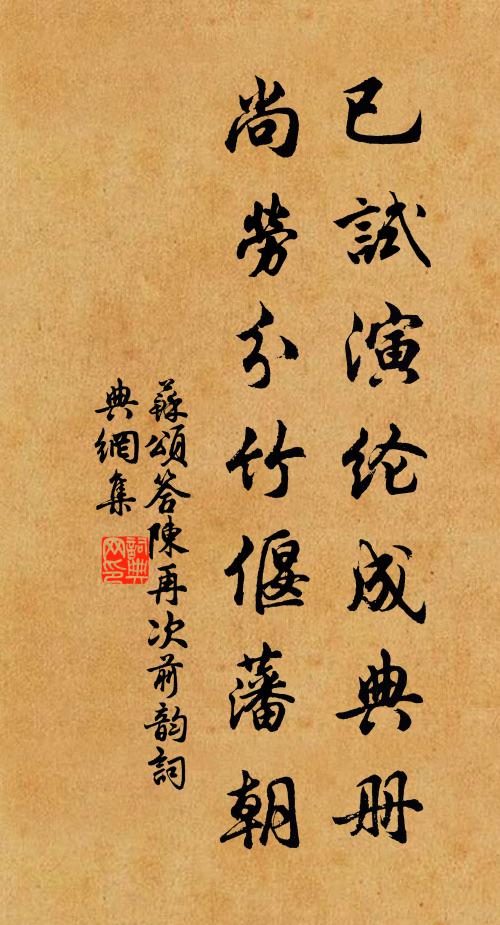 已試演纶成典册
尚勞分竹偃藩朝
蘇頌答陳再次前韵詞
典網集
詞典
网印